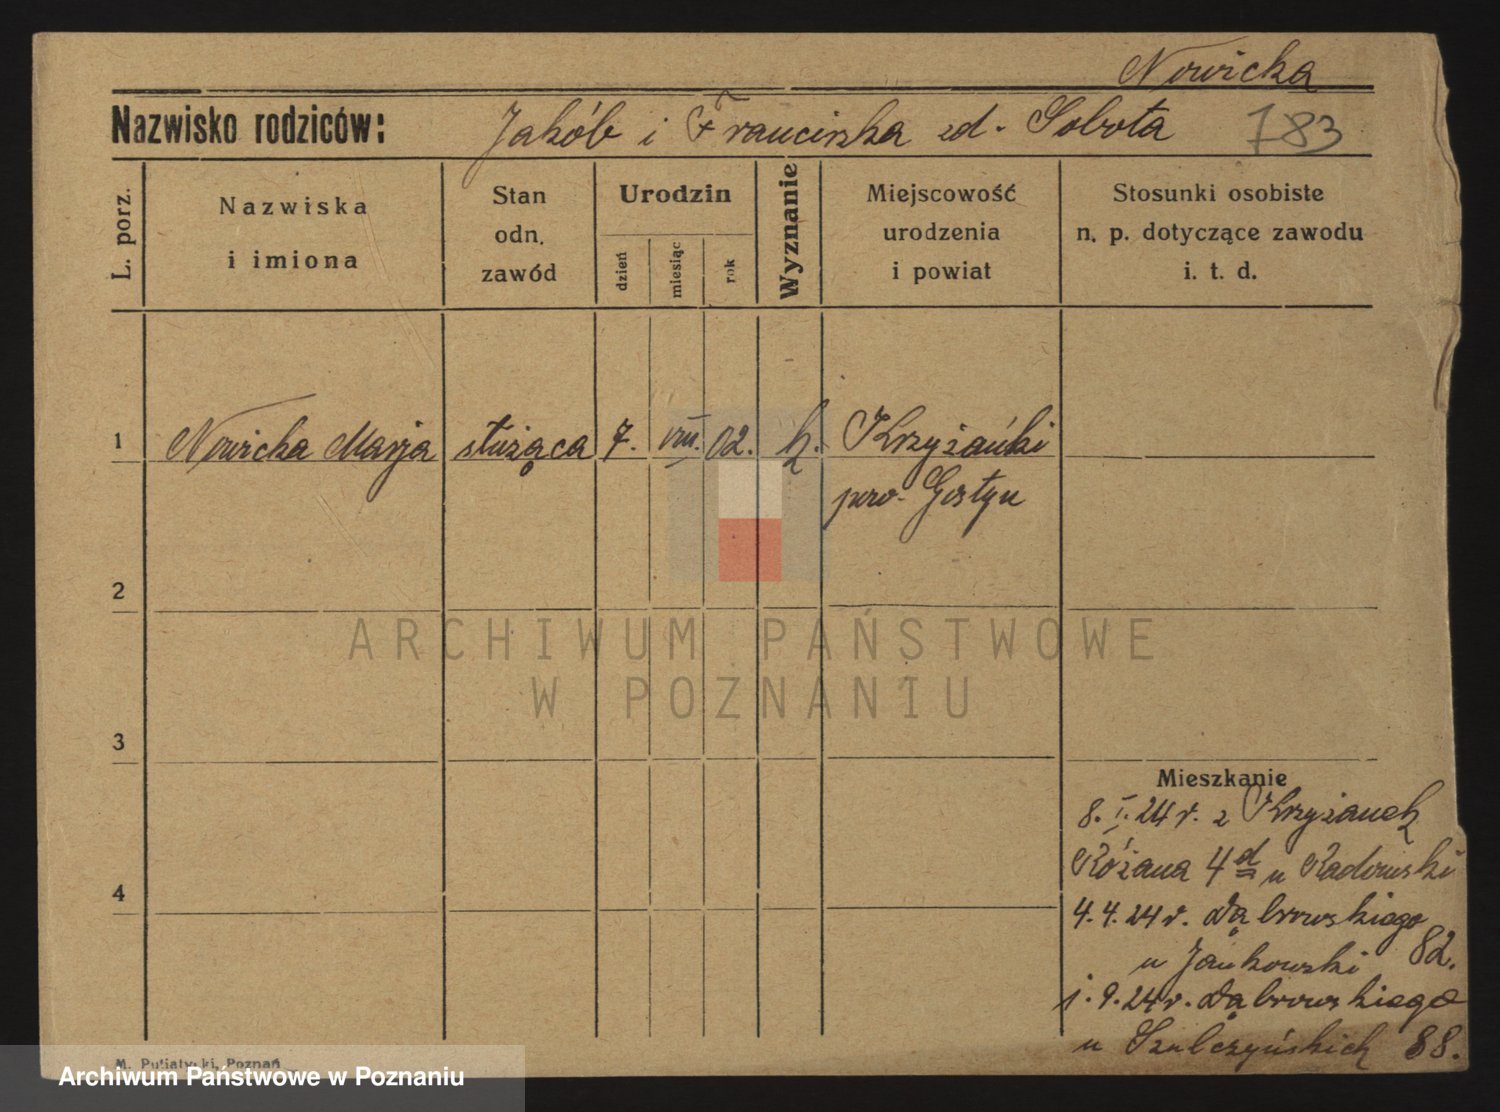 Nowicka
Nazwisko rodziców: Jakób i Franciszka zd. Sobota 783
L. porz.
Nazwiska
i imiona
Stan
odn.
zawód
Urodzin
dzień
miesiąc
rok
Wyznanie
Miejscowość
urodzenia
i powiat
Stosunki osobiste
n. p. dotyczące zawodu
i. t. d.
1 Nowicka Marja służąca 7. VIII. 02. k. Krzyżanki
pow. Gostyń
2
3
4
Mieszkanie
8. I. 24 r. z Krzyżanek
Różana 4d u Radomski
4. 4. 24 r. Dąbrowskiego 82.
u Jankowski
1. 9. 24 r. Dąbrowskiego
u Szulczyńskich 88.
M. Putiatycki, Poznań
ARCHIWUM PAŃSTWOWE
W POZNANIU
Archiwum Państwowe w Poznaniu